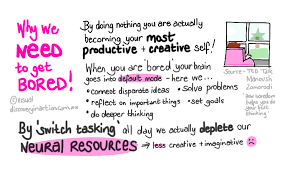 Why we
NEED
to get
BORED!
By doing nothing you are actually
becoming your most
productive + creative self!
When you are 'bored' your brain
goes into default mode - here we...
• connect disparate ideas • solve problems
• reflect on important things • set goals
• do deeper thinking
Source - TED Talk
Manoush
Zomorodi
'How boredom
helps you do
your best
thinking'
discoveryinaction.com.au
By 'switch tasking' all day we actually deplete our
NEURAL RESOURCES → less creative + imaginative